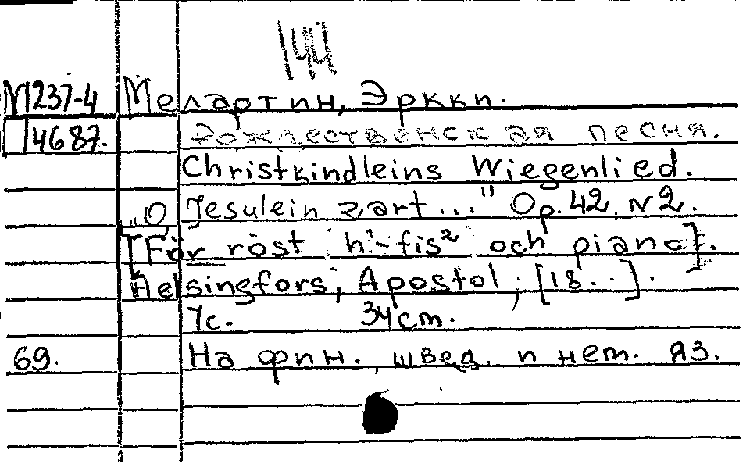 144
М237-4 Мелартин, Эркки.
14687. Рождественская песня.
Christkindleins Wiegenlied.
„O Jesulein zart..." Op. 42, N 2.
[För röst h¹-fis² och piano].
Helsingfors, Apostol, [18..].
7с. 34cm.
69. На фин. швед. и нем. яз.